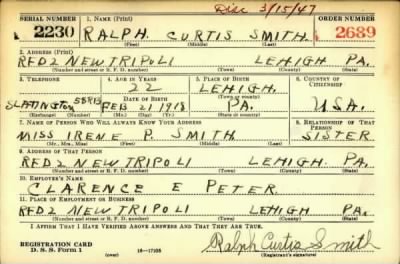 Disc 3/15/47
SERIAL NUMBER 1. NAME (Print) ORDER NUMBER
2230 RALPH CURTIS SMITH. 2689
(First) (Middle) (Last)
2. ADDRESS (Print)
RFD2 NEW TRIPOLI LEHIGH PA.
(Number and street or R. F. D. number) (Town) (County) (State)
3. TELEPHONE 4. AGE IN YEARS 5. PLACE OF BIRTH 6. COUNTRY OF CITIZENSHIP
22 LEHIGH.
SLATINGTON 58R13 DATE OF BIRTH (Town or county)
FEB 21 1918 PA. USA.
(Exchange) (Number) (Mo.) (Day) (Yr.) (State or country)
7. NAME OF PERSON WHO WILL ALWAYS KNOW YOUR ADDRESS 8. RELATIONSHIP OF THAT PERSON
MISS IRENE P. SMITH SISTER.
(Mr., Mrs., Miss) (First) (Middle) (Last)
9. ADDRESS OF THAT PERSON
RFD2 NEW TRIPOLI LEHIGH. PA.
(Number and street or R. F. D. number) (Town) (County) (State)
10. EMPLOYER'S NAME
CLARENCE E PETER.
11. PLACE OF EMPLOYMENT OR BUSINESS
RFD2 NEW TRIPOLI LEHIGH PA.
(Number and street or R. F. D. number) (Town) (County) (State)
I AFFIRM THAT I HAVE VERIFIED ABOVE ANSWERS AND THAT THEY ARE TRUE.
REGISTRATION CARD
D. S. S. Form 1 (over) 16—17105 Ralph Curtis Smith
(Registrant's signature)